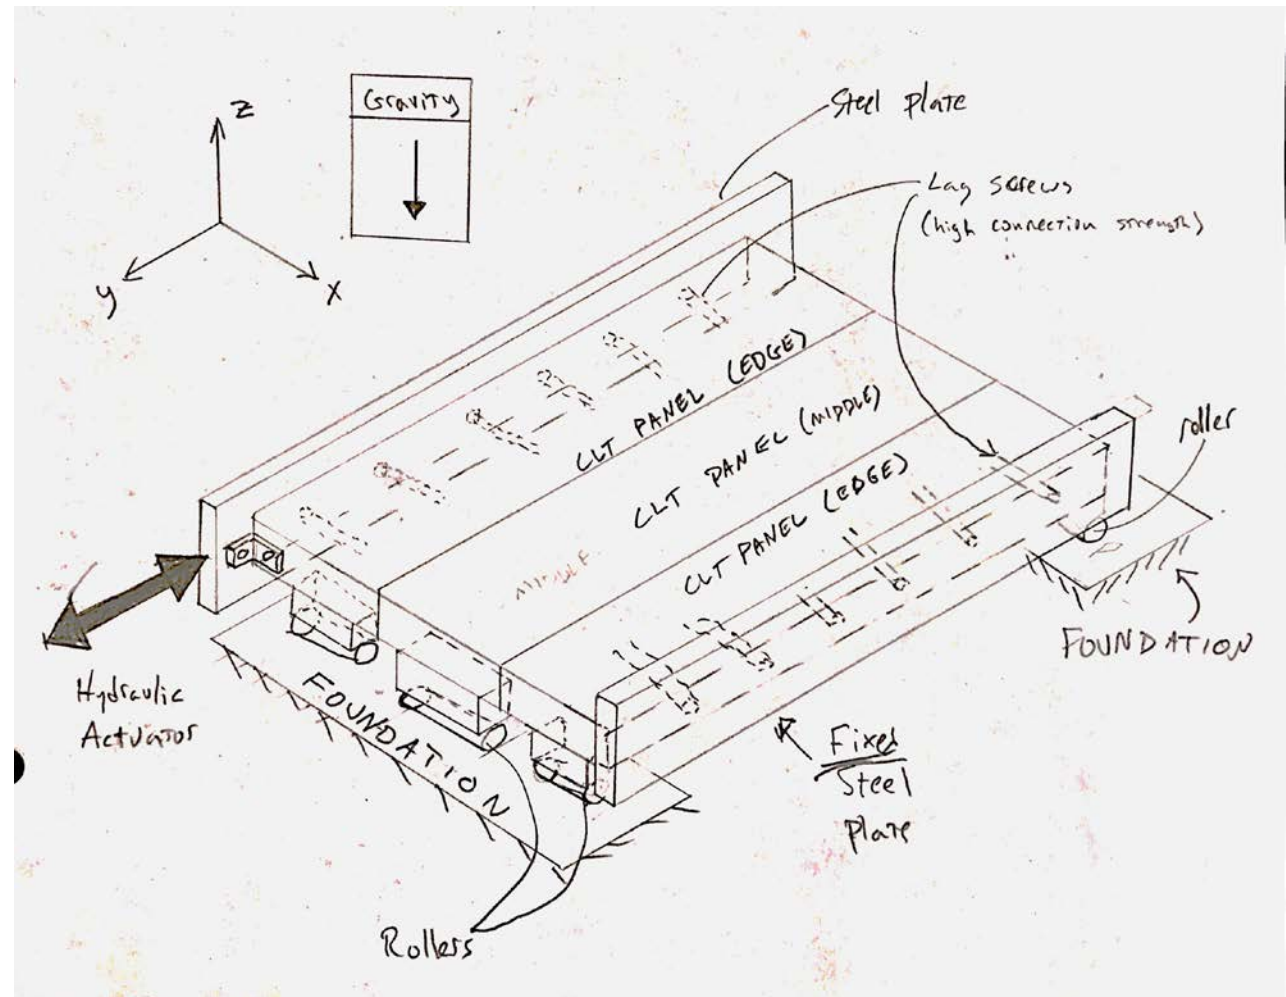 z
y
x
Gravity
Steel plate
Lag screws
(high connection strength)
CLT PANEL (EDGE)
CLT PANEL (MIDDLE)
CLT PANEL (EDGE)
MIDDLE
roller
FOUNDATION
Hydraulic
Actuator
FOUNDATION
Fixed
Steel
plate
Rollers